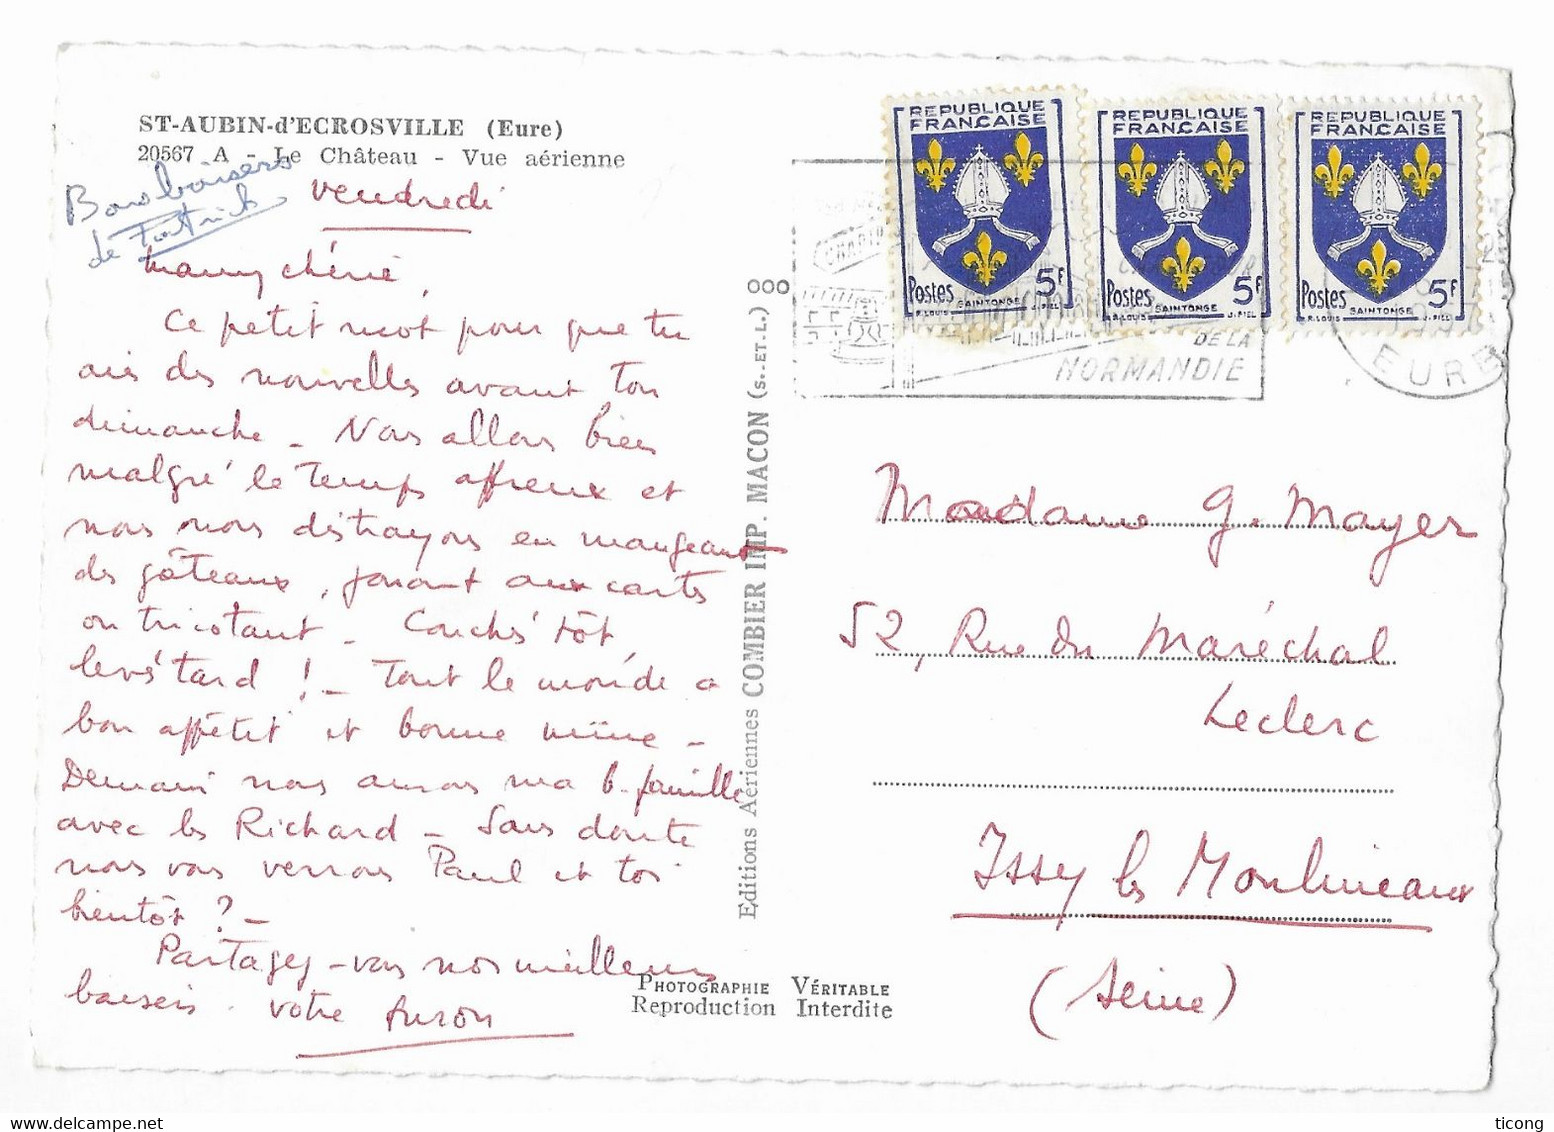 ST-AUBIN-d'ECROSVILLE (Eure)
20567 A - Le Château - Vue aérienne
Bons baisers
de
vendredi
Mamy chérie,
Ce petit mot pour que tu
aies des nouvelles avant ton
dimanche - Nous allons bien
malgré le temps affreux et
nous nous distrayons en mangeant
des gâteaux, jouant aux cartes
ou tricotant - Couchés tôt,
levés tard ! - Tout le monde a
bon appétit et bonne mine -
Demain nous aurons ma b. famille
avec les Richard - Sans doute
nous vous verrons Paul et toi
bientôt ? -
Partagez-vous nos meilleurs
baisers. votre
Editions Aériennes COMBIER IMP. MACON (S.-ET-L.) OOO
PHOTOGRAPHIE VÉRITABLE
Reproduction Interdite
REPUBLIQUE
FRANÇAISE
Postes 5F
SAINTONGE
R. LOUIS J. PIEL
REPUBLIQUE
FRANÇAISE
Postes 5F
SAINTONGE
R. LOUIS J. PIEL
REPUBLIQUE
FRANÇAISE
Postes 5F
SAINTONGE
R. LOUIS J. PIEL
DE LA
NORMANDIE
EURE
Madame G. Mayer
52, Rue du Maréchal
Leclerc
Issy les Moulineaux
(Seine)
ticong
delcampe.net